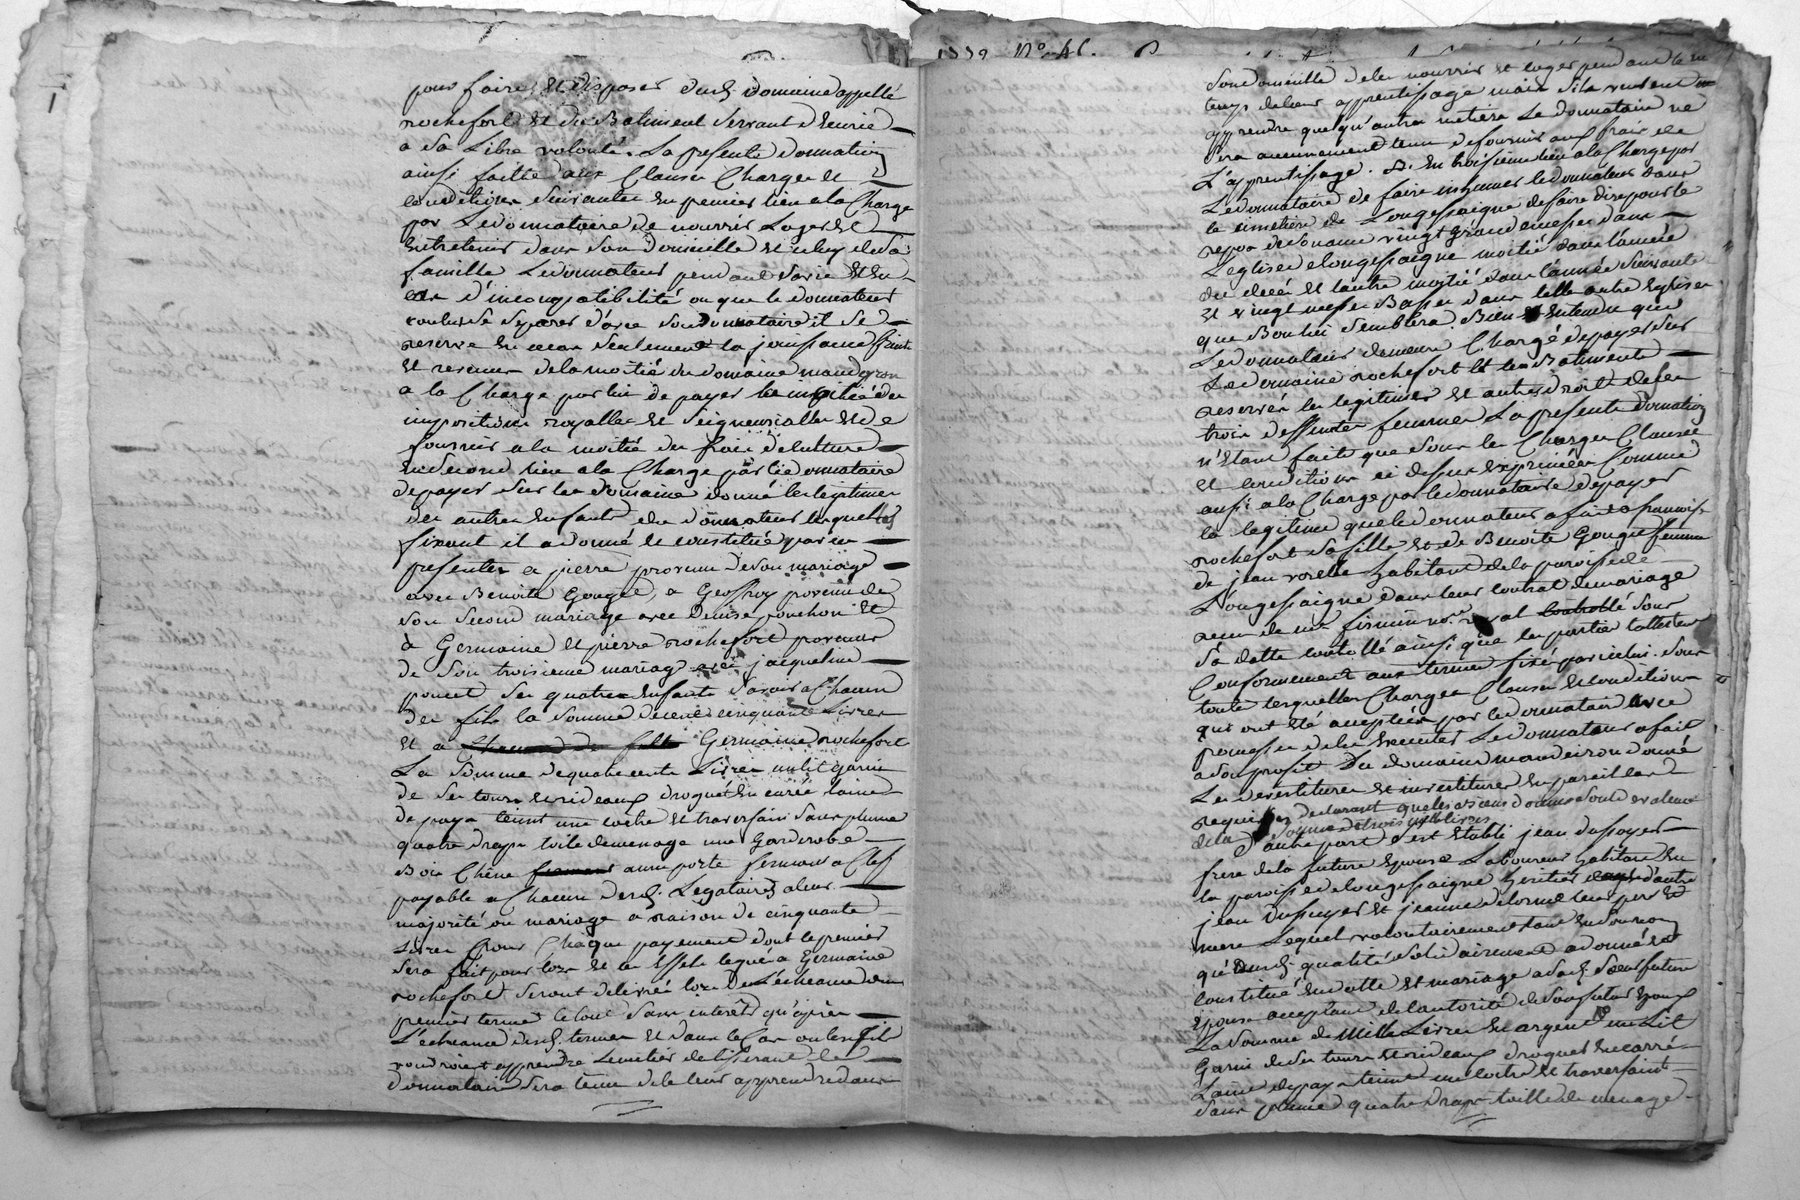 pour faire et disposer dud. domaine appellé
rochefort et du Batiment servant d'Ecurie
a sa Libre volonté. La presente donnation
ainsi faitte aux Clauses Charges et
conditions suivantes en premier lieu a la Charge
par Le donnataire de nourrir Loger et
Entretenir dans son domicille et celuy de sa
famille Ledonnateur pendant sa vie et en
cas d'incompatibilité ou que le donnateur
voulut se separer d'avec son donnataire il se
reserve en ce cas seulement la jouissance fruits
et revenus de la moitié du domaine
a la Charge par lui de payer la moitié des
impositions royalles et seigneurialles et de
fournir a la moitié des frais de culture
En second lieu a la Charge par le donnataire
de payer sur les domaines donné les legitimes
des autres Enfants du donnateur lesquelles
fixant il a donné et constitué par ces
presentes a pierre provenu de son mariage
avec Benoite Gougat, a Geoffroy provenu de
son second mariage avec Denise ponchon et
à Germaine et pierre rochefort provenus
de son troisieme mariage avec jacqueline
poncet ses quatres Enfants savoir a Chacun
des fils la somme de cent cinquante Livres
et a Chacune des filles Germaine rochefort
La somme de quatre cents Livres un lit garni
de ses tours et rideaux droguet en carré laine
de pays teint une coitre et traversain sans plume
quatre draps toile de menage une Garderobe
Bois Chene a une porte fermant a Clef
payable a Chacun desd. Legataires a leur
majorité ou mariage a raison de cinquante
Livres pour Chaque payement dont le premier
sera fait pour lors et les Effets legué a Germaine
rochefort seront delivrés lors de l'échéance du
premier terme le tout sans interêts qu'après
L'echéance desd. termes et dans le Cas ou les fils
voudroient apprendre le metier de tisserant le
donnataire sera tenu de le leur apprendre dans
1779 N° 46.
son domicille de les nourrir et loger pendant le
temps de leur apprentissage mais s'ils veulent
apprendre quelqu'autre metiers Le donnataire ne
sera aucunement tenu de fournir aux frais de
L'apprentissage. En troisieme lieu a la Charge par
Le donnataire de faire inhumer le donnateur dans
le cimetiere de Longessaigne de faire dire pour le
repos de son ame vingt grandes messes dans
L'eglise de Longessaigne moitié dans l'année
du decés et l'autre moitié dans l'année suivante
et vingt messes Basses dans telle autre Eglise
que Bon lui semblera. Bien Entendu que
Le donnataire demeure Chargé de payer sur
Le domaine rochefort et les Batiments
reservés les legitimes et autres droits de ses
trois deffuntes femmes La presente donnation
n'etant faite que sous les Charges Clauses
et conditions ci dessus exprimées Comme
aussi a la Charge par le donnataire de payer
la legitime que le donnateur a fait a françoise
rochefort sa fille et de Benoite Gougat femme
de jean habitant de la paroisse de
Longessaigne dans leur contrat de mariage
recu de me firmin no.re contrôllé sous
sa datte contrôllé ainsi que les parties l'attestent
Conformement aux termes fixé par icelui. Sous
toute lesquelles Charges Clauses et Conditions
qui ont été acceptées par le donnataire avec
promesse de les executer Le donnateur a fait
a son profit du domaine donné
Les devestitures et investitures en pareil cas
requises declarant que les objets donnés sont de valeur
de la somme de trois mille livres
D'autre part s'est Etabli jean dussoyer
frere de la future Epouse Laboureur habitant en
la paroisse de Longessaigne heritier d'autre
jean Dussuyer et jeanne delorme leur pere et
mere Lequel volontairement tant en son nom
qu'Esd. qualités solidairement a donné et
constitué en dotte et mariage a lad. sœur future
Epouse acceptant de l'autorité de son futur Epoux
La somme de Mille Livres en argent un Lit
Garni de ses tours et rideaux droguet en carré
Laine de pays teint une coitre et traversaint
sans plume quatre draps toille de menage